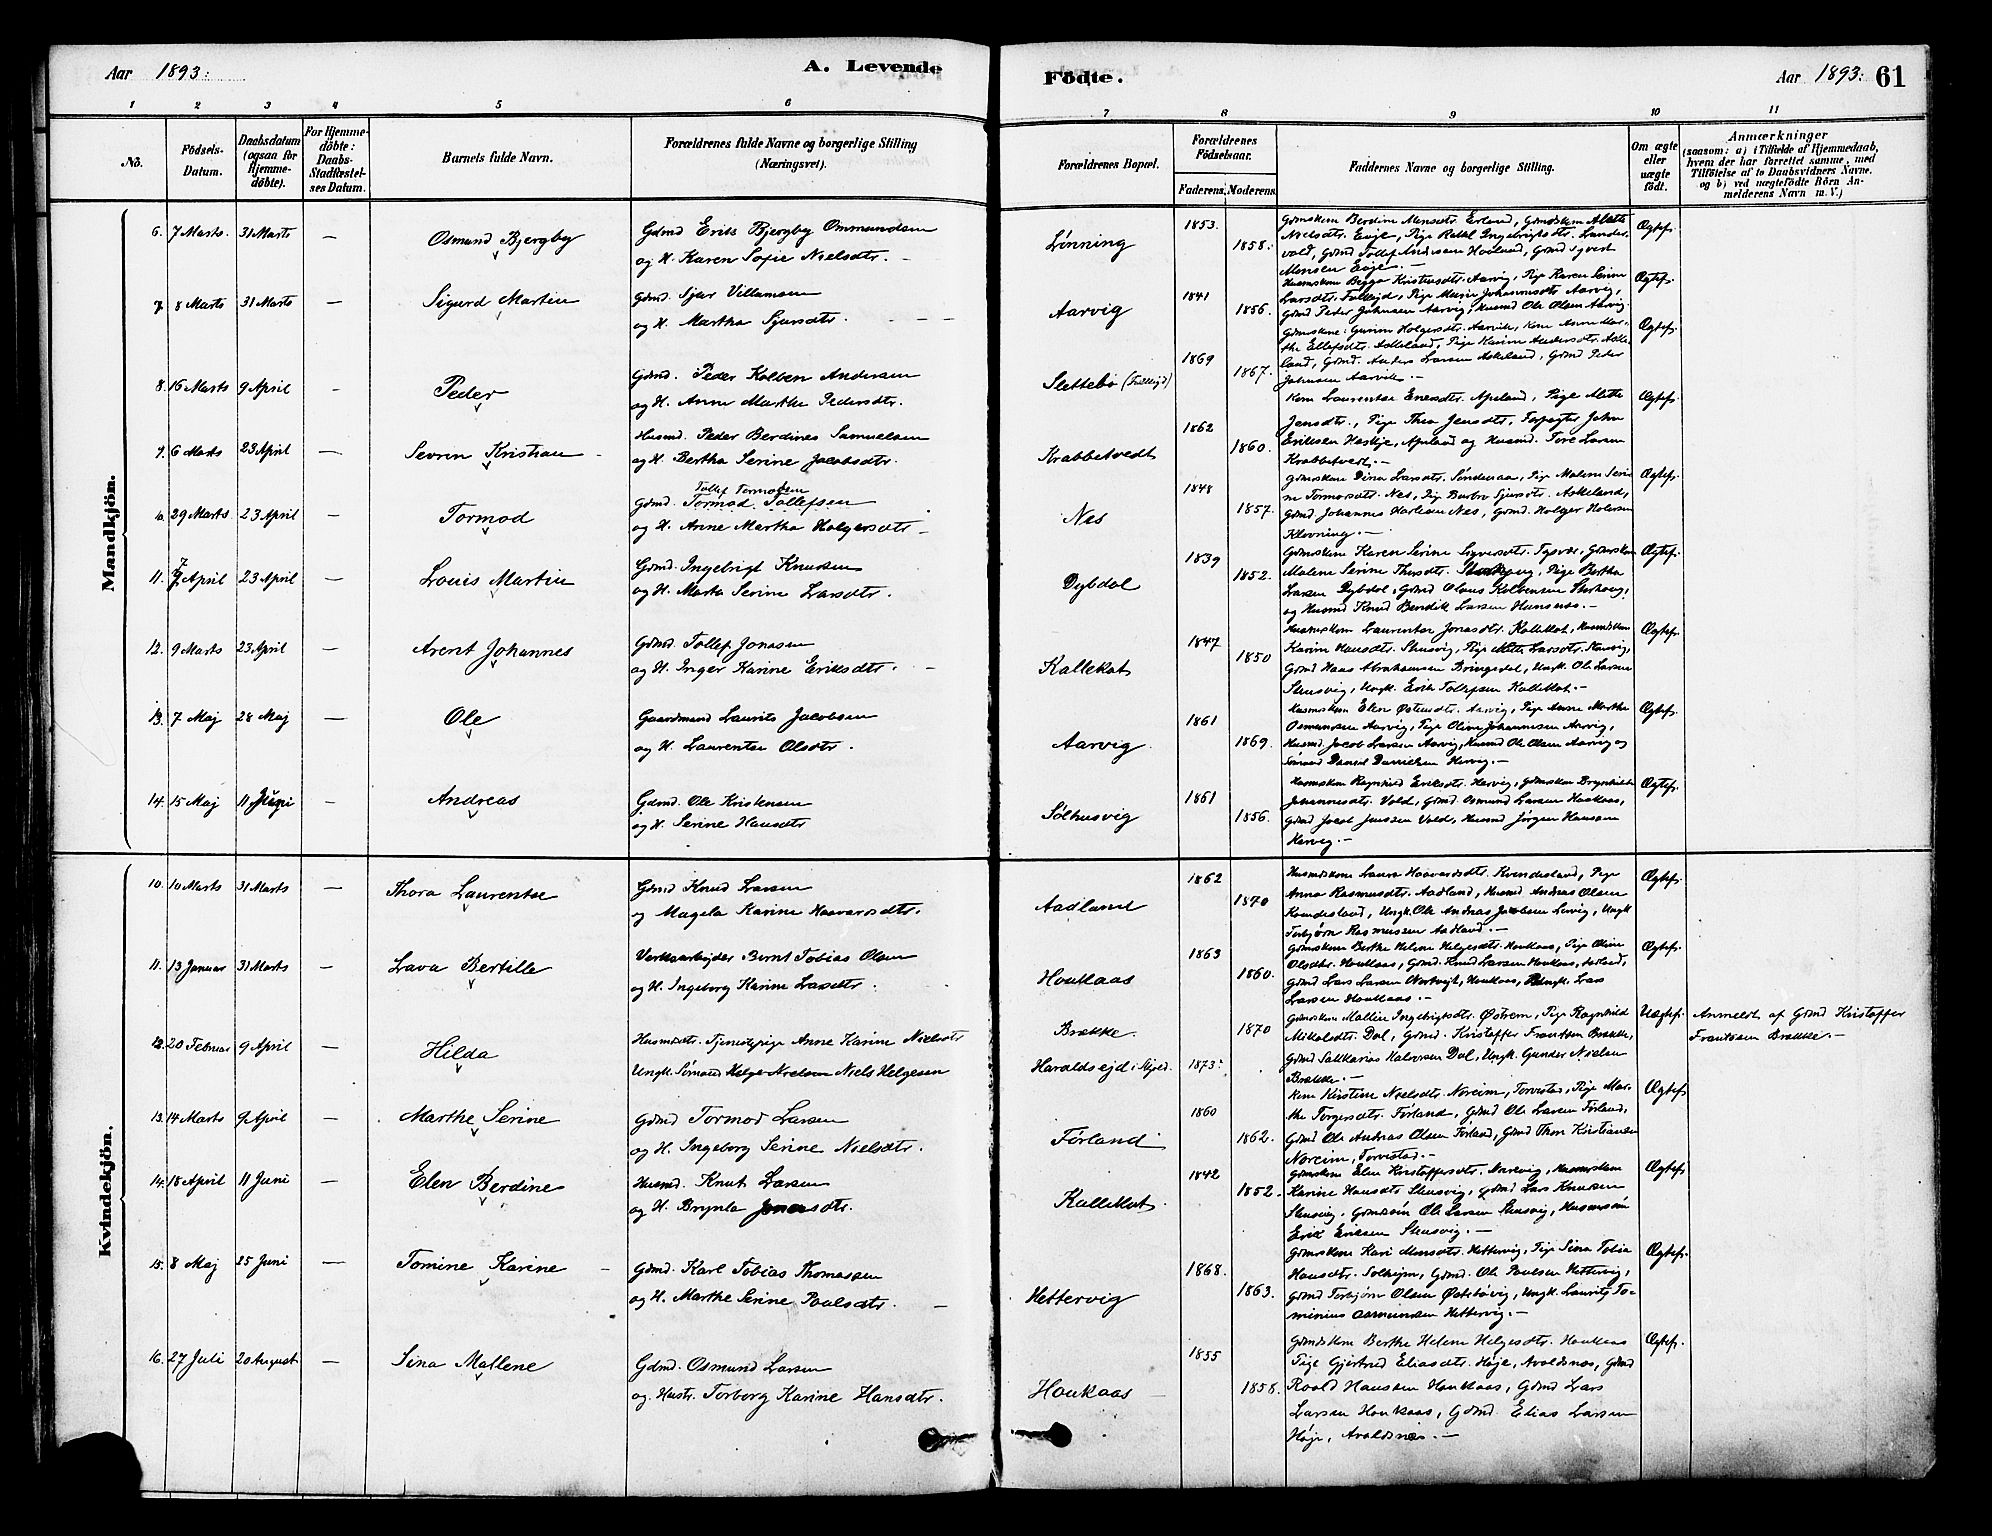 Aar 1893.
A. Levende
Födte.
Aar 1893. 61
1 2 3 4 5 6 7 8 9 10 11
No.
Födsels-Datum.
Daabsdatum (ogsaa for Hjemme-döbte).
For Hjemme-döbte: Daabs-Stadfæstel-ses Datum.
Barnets fulde Navn.
Forældrenes fulde Navne og borgerlige Stilling
(Næringsvei).
Forældrenes Bopæl.
Forældrenes Födselsaar.
Faderens. Moderens.
Faddernes Navne og borgerlige Stilling.
Om ægte eller uægte födt.
Anmærkninger
(saasom: a) i Tilfælde af Hjemmedaab, hvem der har forrettet samme, med Tilföielse af to Daabsvidners Navne, og b) ved uægtefödte Börn An-melderens Navn m. V.)
Mandkjön.
6. 7 Marts. 31 Marts — Osmund Bjergby
Gdmd Erik Bjergby Ommundsen
og H. Karen Sofie Nielsdtr. —
Lønning 1853. 1858.
Gdmskem Berdine Monsdtr. Erland, Gdmdskem Alette
Nielsdtr. Eige, Pige Rakel Ingebrigtsdtr. Lunde-
vold, Gdmd Tollef Andersen Hovland, Gdmd Syvert
Monsen Eige. —
Ægtef.
7. 8 Marts 31 Marts — Sigurd Martin
Gdmd. Sjur Villumsen
og H. Martha Sjursdtr. — — —
Aarvig 1841 1856.
Husmskem Begga Kristensdtr. Aarvig, Pige Karen Serine
Larsdtr. Falkeid, Pige Marie Johannesdtr Aarvig,
Gdmd Peder Johnsen Aarvig, Husmd Ole Olsen Aarvig.
Ægtef.
8. 16 Marts 9 April — Peder
Gdmd. Peder Kolben Andersen
og H. Anne Marthe Pedersdtr.
Slettebø (Falkeid) 1869 1867.
Gdmskone: Gurine Holgersdtr. Aarvik, Kone Anne Mar-
the Ellefsdtr. Askeland, Pige Karine Andersdtr. Aske-
land, Gdmd. Anders Larsen Askeland, Gdmd Peder
Johnsen Aarvik. —
Ægtef.
9. 6 Marts 23 April — Sevrin Kristian
Husmd. Peder Berdines Samuelsen
og H. Bertha Serine Jacobsdtr.
Krabbetvedt 1862 1860.
Kone Laurentze Enesdtr. Apeland, Pige Alette
Jensdtr., Pige Thea Jensdtr., Forpagter John
Eriksen Haskje, Apeland og Husmd. Tore Larsen
Krabbetvedt. —
Ægtef.
10. 29 Marts 23 April — Tormod
Tollef Tormodsen
Gdmd. Tormod Tollefsen
og H. Anne Martha Holgersdtr —
Nes 1848 1857.
Gdmskone Dina Larsdtr. Søndenaa, Pige Malene Seri-
ne Tormodsdtr. Nes, Pige Barbro Sjursdtr. Askeland,
Gdmd Johannes Nes, Gdmd. Holger Holgersen
Klovning. —
Ægtef.
11. 7 April 23 April — Louis Martin
Gdmd. Ingebrigt Knutsen
og H. Marta Serine Larsdtr.
Dybdal 1839 1852.
Gdmskem Karen Serine Syversdtr. Tysvær, Gdmskem
Malene Serine Pige Bertha
Larsen Dybdal, Gdmd Olaus Kolbensen
og Husmd Knud Bendik Larsen —
Ægtef.
12. 9 Marts 23 April — Arent Johannes
Gdmd. Tollef Jonasen
og H. Inger Karine Eriksdtr. —
Kallekot 1847 1850
Husmskem Laurentze Jonasdtr. Kallekot, Husmskem
Karine Hansdtr. Stensvig, Pige Mette Larsdtr.
Gdmd Haas Abrahamsen Bringedal, Ungk. Ole Larsen
Stensvig, Ungk. Erik Tollefsen Kallekot. —
Ægtef.
13. 7 Maj 28 Maj — Ole
Gaardmand Laurits Jacobsen
og H. Laurentze Olsdtr.
Aarvig. 1861 1869.
Husmskem Elen Østensdtr. Aarvig, Pige Anne Marthe
Osmundsen Aarvig, Pige Oline Johannesen Aarvig,
Husmd. Jacob Larsen Aarvig, Husmd Ole Olsen Aarvig og
Sømand Daniel Danielsen Hervig. —
Ægtef.
14. 15 Maj 11 Juni — Andreas
Gdmd. Ole Kristensen
og H. Serine Hansdtr
Sølhusvig 1861 1856.
Husmskem Ragnhild Eriksdtr. Hervig, Gdmskem Brynhild
Johannesdtr. Vold, Gdmd. Osmund Larsen Houkaas,
Gdmd Jacob Jenssen Vold, Husmd Jørgen Hansen
Hervig. —
Ægtef.
Kvindekjön.
10. 10 Marts 31 Marts — Thora Laurentze
Gdmd Knud Larsen
og Magela Karine Haavarsdtr.
Aadland 1862 1870
Husmdskone Laura Haavardsdtr. Kvindesland, Pige
Anna Rasmusdtr. Aadland, Husmd Andreas Olsen
Kvindesland, Ungk. Ole Andreas Jacobsen Lervig, Ungk
Torbjørn Rasmussen Aadland. —
Ægtef.
11. 13 Januar 31 Marts — Lava Bertille
Verksarbejder Bernt Tobias Olsen
og H. Ingeborg Karine Larsdtr.
Houkaas 1863 1860.
Gdmskem Berthe Helene Helgesdtr. Houkaas, Pige Oline
Olsdtr. Houkaas, Gdmd. Knud Larsen Houkaas,
Gdmd Lars Larsen Houkaas, Ungk. Lars
Larsen Houkaas. —
Ægtef.
12. 20 Februar 9 April — Hilda
Husmdsdtr. Tjenestepige Anne Karine Nielsdtr
Ungk. Sømand Helge Nielsen Niels Helgesen
Brække. 1870
Haraldsejd i Skjold. 1873.
Gdmskem Malene Ingebrigtsdtr. Østrem, Pige Ragnhild
Mikalsdtr Dal, Gdmd. Kristoffer Frantsen Brække,
Gdmd Sakkarias Halvorsen Dal, Ungk. Gunder Nielsen
Brække. —
Uægtef.
Anmeldt af Gdmd Kristoffer
Frantssen Brække. —
13. 14 Marts 9 April — Marthe Serine
Gdmd Tormod Larsen
og H. Ingeborg Serine Nielsdtr.
Førland 1860 1862.
Kone Kirstine Nielsdtr. Noreim, Torvestad, Pige Mar-
the Torgersdtr. Førland, Gdmd Ole Larsen Førland,
Gdmd Ole Andreas Olsen Førland, Gdmd Thor Kristiansen
Noreim, Torvestad. —
Ægtef.
14. 18 April 11 Juni — Elen Berdine
Husmd. Knut Larsen
og H. Brynla Jonasdtr.
Kallekot. 1842 1852.
Gdmskem Elen Kristoffersdtr. Husmskem
Karine Hansdtr Stensvig, Gdmd Lars Knutsen
Stensvig, Gdmdssøn Ole Larsen Stensvig, Husmssøn
Erik Eriksen Stensvig. —
Ægtef.
15. 8 Maj 25 Juni — Tomine Karine —
Gdmd. Karl Tobias Thomassen
og H. Marthe Serine Paulsdtr. —
Hettervig 1868. 1863.
Gdmskem Kari Monsdtr. Hettervig, Pige Sina Tobia
Hansdtr. Solheim, Gdmd. Ole Paulsen Hettervig,
Gdmd Torbjørn Olsen Østebøvig, Ungk. Laurits To-
minius Osmundsen Hettervig. —
Ægtef.
16. 27 Juli 20 August — Sina Mallene
Gdmd. Osmund Larsen
og Hustr. Torborg Karine Hansdtr.
Houkaas — 1855 1858.
Gdmdskem Berthe Helene Helgesdtr. Houkaas
Pige Gjertrud Eliasdtr. Høje, Avaldsnes, Gdmd
Roald Hanssen Houkaas, Gdmd Lars
Larsen Houkaas, Gdmd. Elias Larsen
Høje, Avaldsnes. —
Ægtef.